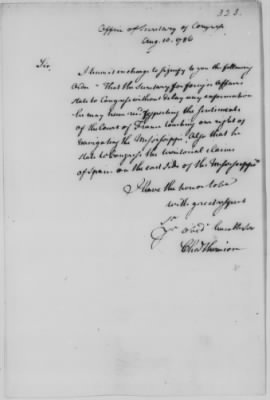 323.
Office of Secretary of Congress
Aug. 10. 1786
Sir,
I have it in charge to signify to you the following
Order "That the Secretary for foreign Affairs
state to Congress without delay any information
he may have respecting the sentiments
of the Court of France touching our right of
Navigating the Mississippi Also that he
state to Congress the territorial claims
of Spain on the east side of the Mississippi"
I have the honor to be
with great respect
Sr your obedt humble Ser
Chas Thomson